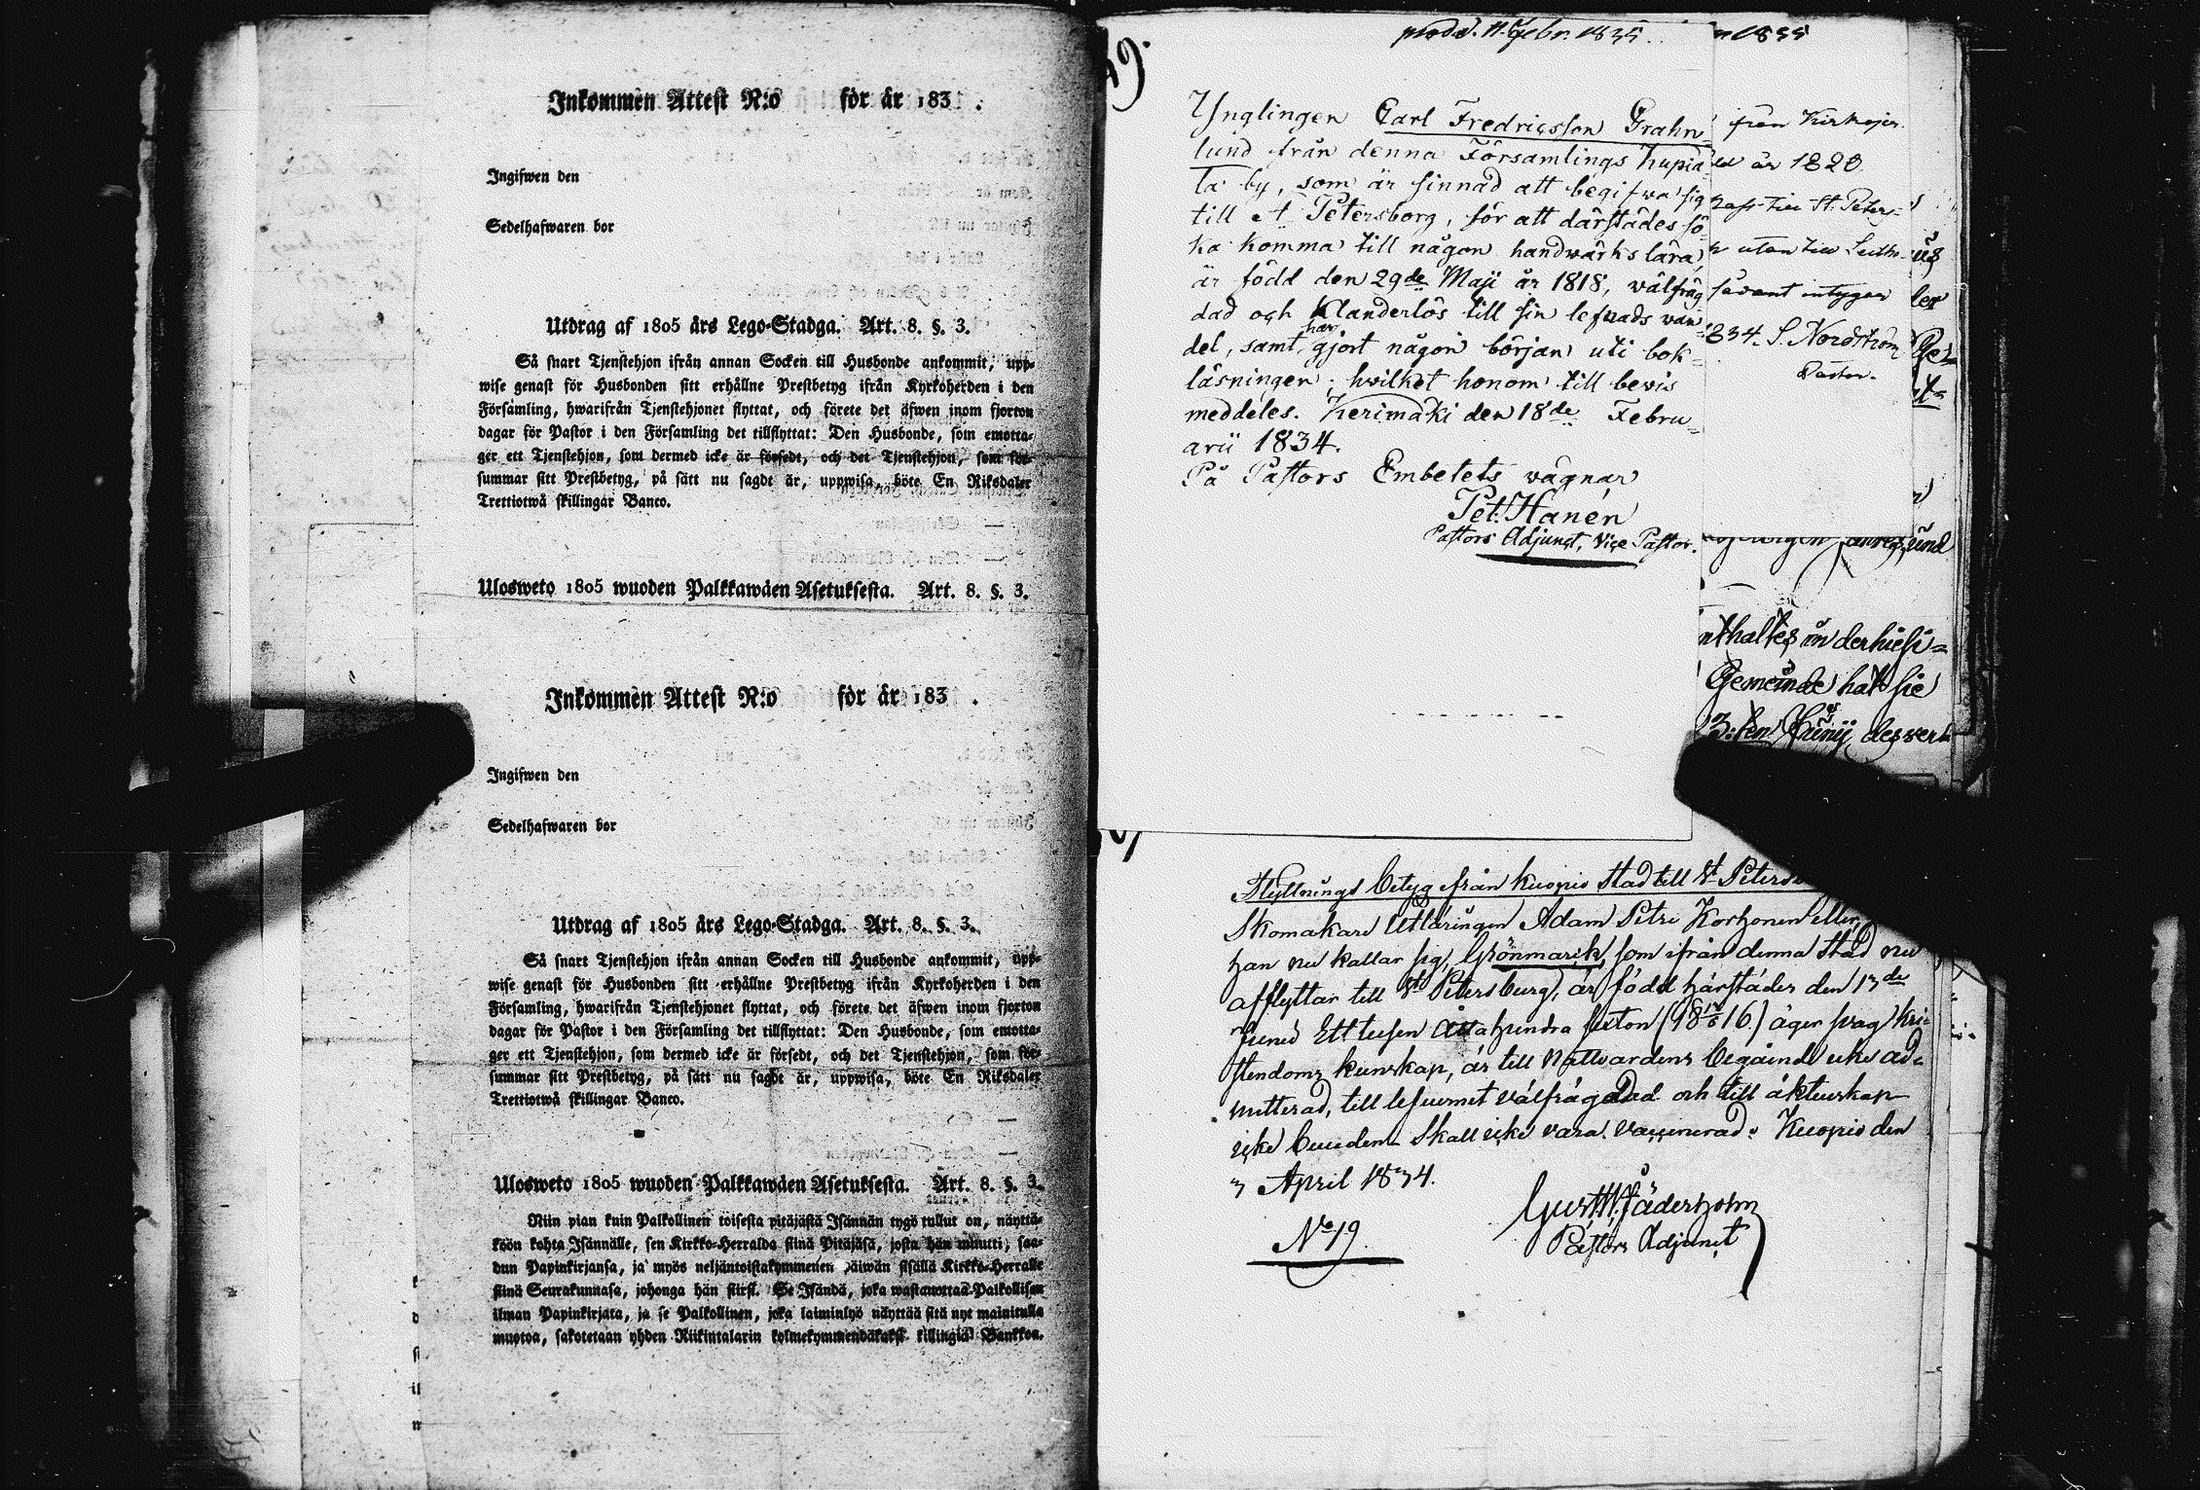 Inkommen Attest N:o för år 183 .
Ingifwen den
Sedelhafwaren bor
Utdrag af 1805 års Lego-Stadga. Art. 8. §. 3.
Så snart Tjenstehjon ifrån annan Socken till Husbonde ankommit, upp-
wise genast för Husbonden sitt erhållne Prestbetyg ifrån Kyrkoherden i den
Församling, hwarifrån Tjenstehjonet flyttat, och förete det äfwen inom fjorton
dagar för Pastor i den Församling det tillflyttat: Den Husbonde, som emotta-
ger ett Tjenstehjon, som dermed icke är försedt, och det Tjenstehjon, som för-
summar sitt Prestbetyg, på sätt nu sagdt är, uppwisa, böte En Riksdaler
Trettiotwå skillingar Banco.
Ulosweto 1805 wuoden Palkkawäen Asetuksesta. Art. 8. §. 3.
Inkommen Attest N:o för år 183 .
Ingifwen den
Sedelhafwaren bor
Utdrag af 1805 års Lego-Stadga. Art. 8. §. 3.
Så snart Tjenstehjon ifrån annan Socken till Husbonde ankommit, upp-
wise genast för Husbonden sitt erhållne Prestbetyg ifrån Kyrkoherden i den
Församling, hwarifrån Tjenstehjonet flyttat, och förete det äfwen inom fjorton
dagar för Pastor i den Församling det tillflyttat: Den Husbonde, som emotta-
ger ett Tjenstehjon, som dermed icke är försedt, och det Tjenstehjon, som för-
summar sitt Prestbetyg, på sätt nu sagdt är, uppwisa, böte En Riksdaler
Trettiotwå skillingar Banco.
Ulosweto 1805 wuoden Palkkawäen Asetuksesta. Art. 8. §. 3.
Niin pian kuin Palkollinen toisesta pitäjästä Isännän tygö tullut on, näyttä-
köön kohta Isännälle, sen Kirkko-Herralda siinä Pitäjäsä, josta hän muutti, saa-
dun Papinkirjansa, ja myös neljäntoistakymmenen päiwän sisällä Kirkko-Herralle
siinä Seurakunnasa, johonga hän siirsi. Se Isändä, joka wastanottaa Palkollisen
ilman Papinkirjata, ja se Palkollinen, joka laiminlyö näyttää sitä nyt mainitulla
muotoa, sakotetaan yhden Riikintalarin kolmekymmendäkaksi killingiä Bankkoa.
prod. 11. Febr. 1835.
Ynglingen Carl Fredricsson Grahn
lund från denna Församlings Kupia
la by, som är sinnad att begifwa sig
till St Petersborg, för att därstädes sö-
ka komma till någon handwärks lära,
är född den 29de Maji år 1818, wälfräg
dad och klanderlös till sin lefnads van-
del, samt har gjort någon början uti bok-
läsningen; hwilket honom till bevis
meddeles. Kerimäki den 18de Febru-
arii 1834.
På Pastors Embetets vägnar
Pet: Hanén
Pastors Adjunct, Viçe Pastor.
1855
från Kirkojer
år 1820
till St. Peters-
utan
intygar
1834. S. Nordström
Pastor.
und
nthaltes in der hiesi-
Gemeinde hat sie
Flyttnings betyg från Kuopio stad till St Petersb
Skomakare Utläringen Adam Petri Korhonen eller,
han nu kallar sig, Grönmarck, som ifrån denna stad nu
afflyttar till St Petersburg, är född härstädes den 13de
Junii Ett tusen Åttahundra sexton (1816.) äger svag kri-
stendoms kunskap, är till Nattvardens begående icke ad-
mitterad, till lefvernet välfrägdad och till äktenskap
icke bunden. Skall icke vara vaccinerad. Kuopio den
3 April 1834.
No 19.
Gust. W. Fäderholm
Pastors Adjunct